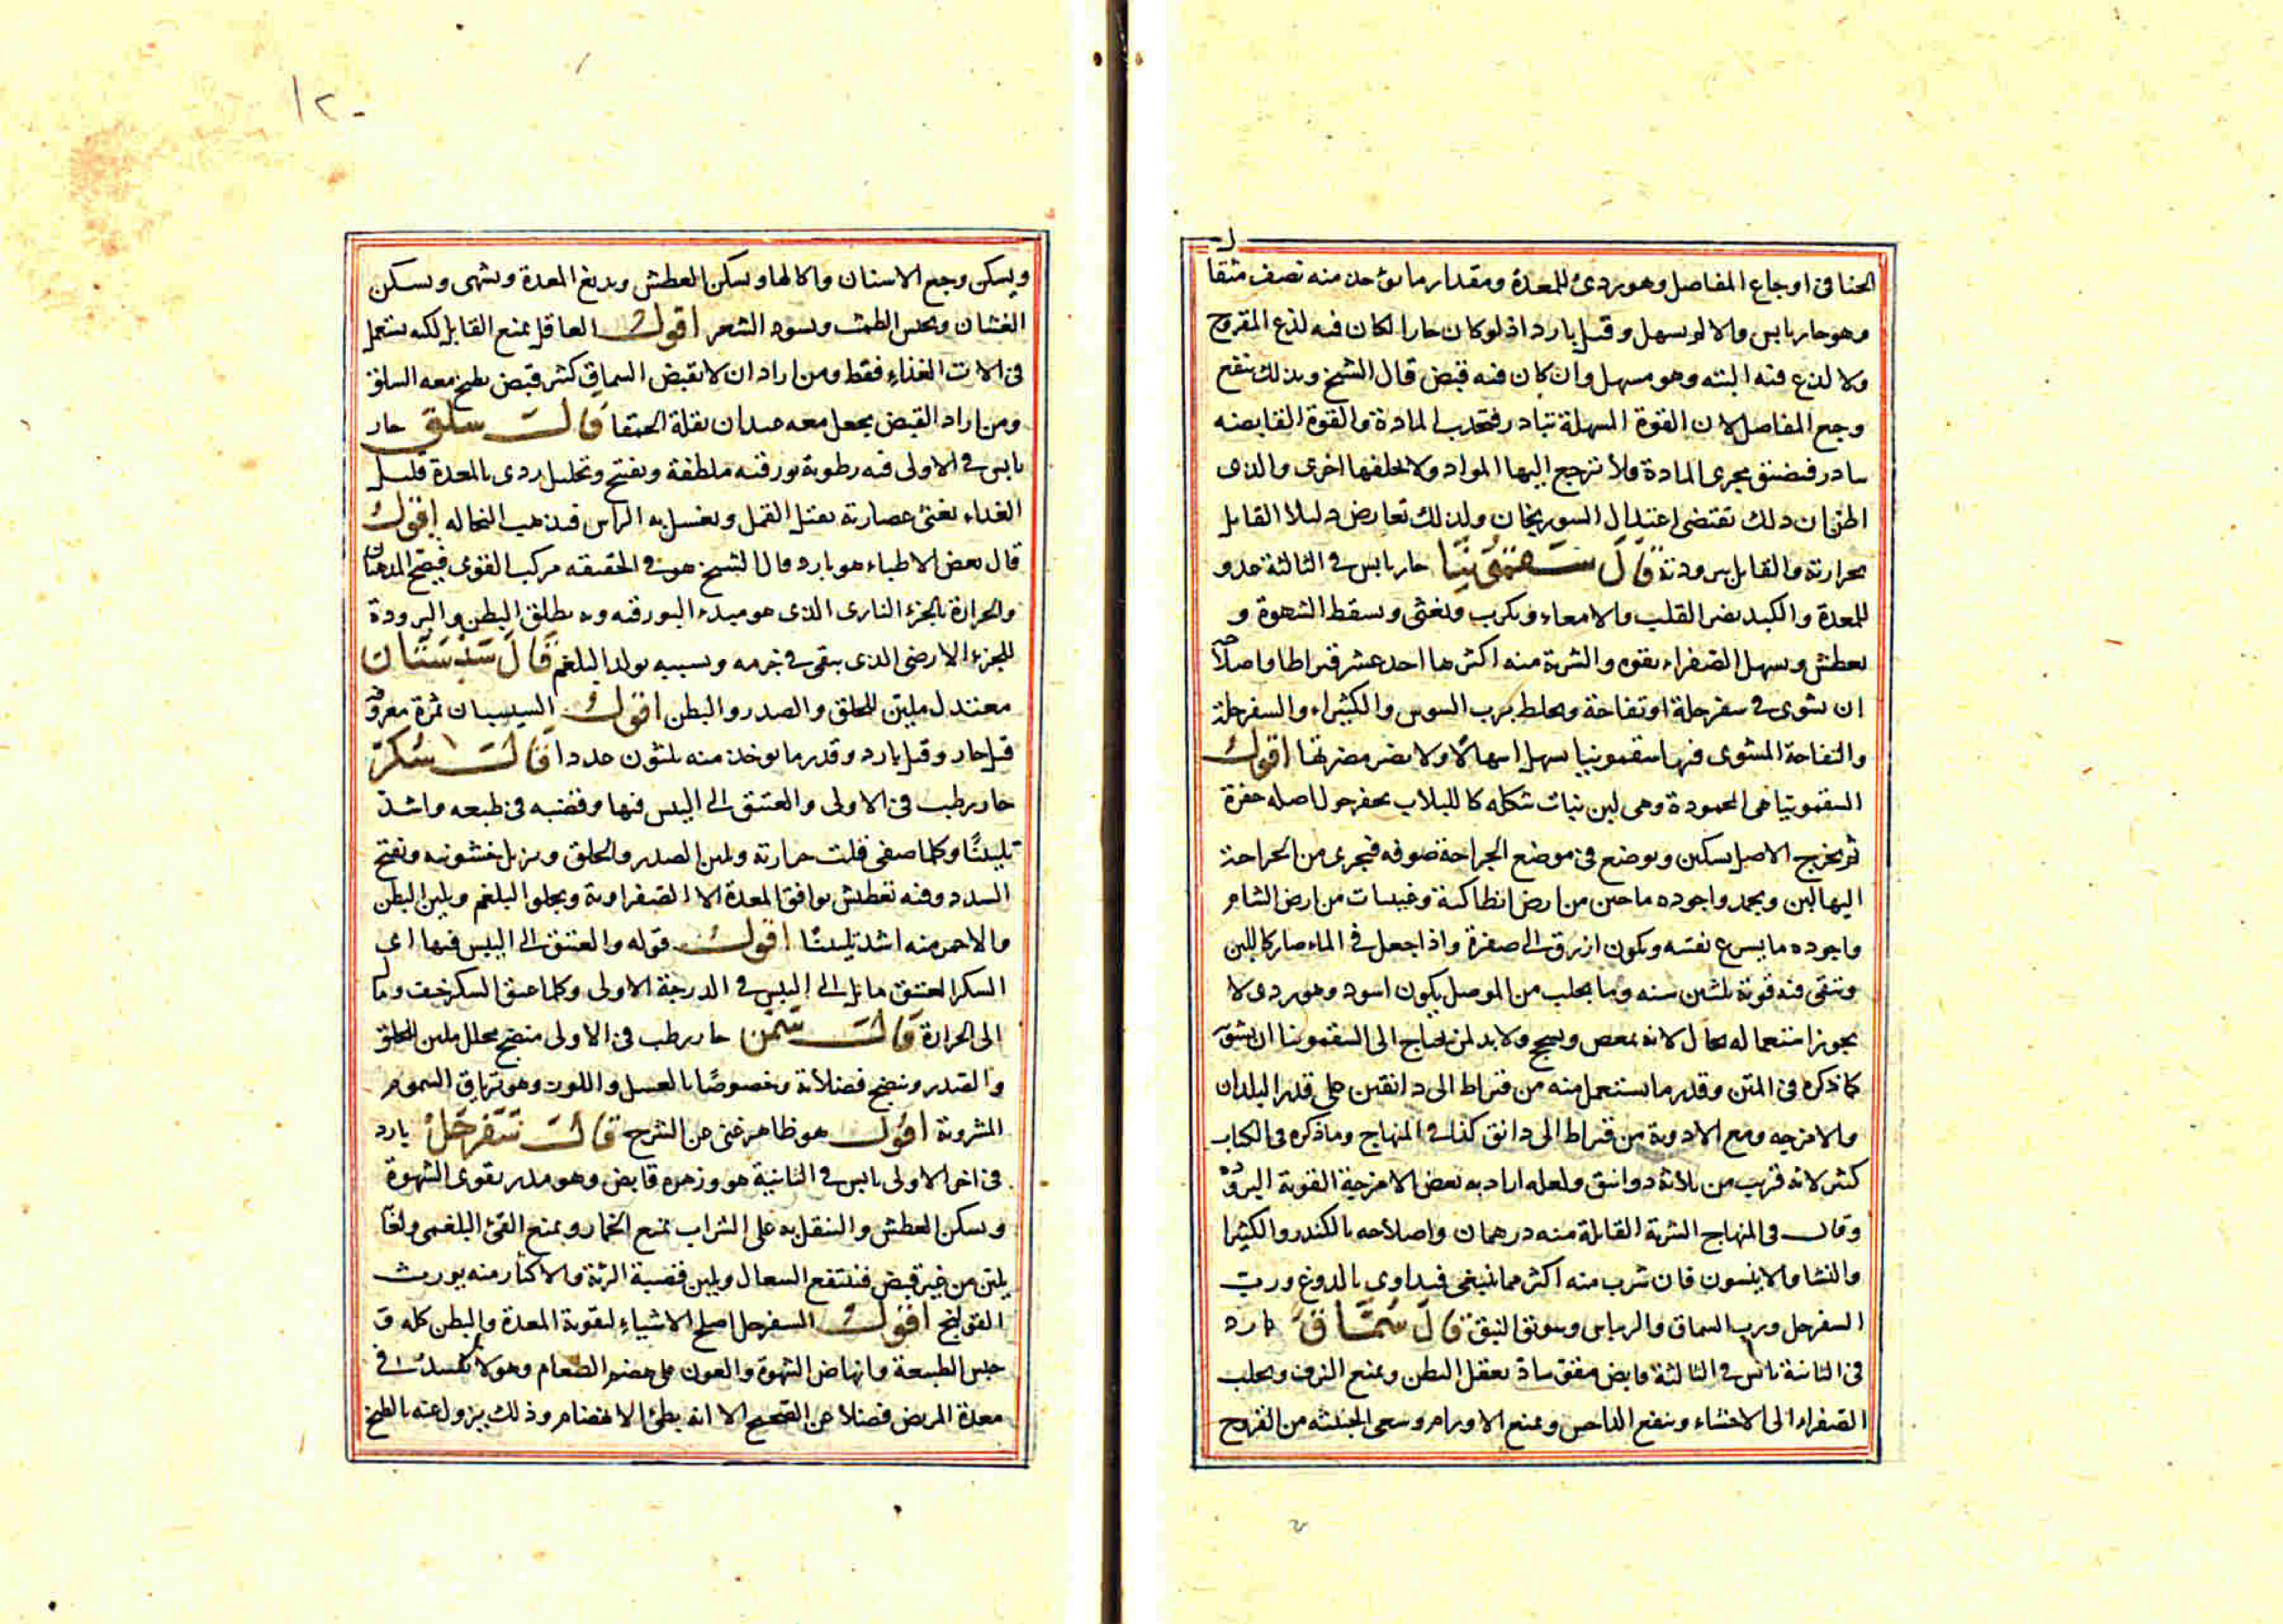 الحنا فى اوجاع المفاصل وهو ردئ للمعدة ومقدار ما يؤخذ منه نصف مثقال
وهو حار يابس والا لو يسهل وقيل بارد اذ لو كان حارا لكان فيه لذع المقروح
ولا لذع فيه البته وهو مسهل وان كان فيه قبض قال الشيخ وبذلك ينفع
وجع المفاصل لان القوة المسهلة تبادر فتجذب المادة والقوة القابضه
تبادر فيضيق مجرى المادة فلا ترجع اليها المواد ولا تخلفها اخرى والذى
اظن ان ذلك تقتضى اعتدال السورنجان ولذلك تعارض دليلا القايل
بحرارته والقايل ببرودته قال سقمونيا حار يابس فى الثالثة عدو
للمعدة والكبد يضر القلب والامعاء ويكرب ويغثى ويسقط الشهوة و
يعطش ويسهل الصفراء بقوه والشربة منه اكثرها احد عشر قيراطا واصلاحه
ان يشوى فى سفرجلة او تفاحة ويخلط برب السوس والكثيراء والسفرجلة
والتفاحة المشوى فيها سقمونيا يسهل اسهالا ولا يضر مضرتها اقول
السقمونيا هى المحمودة وهى لبن نبات شكله كاللبلاب يحفر حول اصله حفرة
ثم يخرج الاصل بسكين ويوضع فى موضع الجراحة صوفه فيجرى من الجراحة
اليها لبن ويجمد واجوده ما حين من ارض انطاكية وغيسات من ارض الشام
واجوده ما يسرع تفتته ويكون ازرق الى صفرة واذا جعل فى الماء صار كاللبن
وتبقى فيه قوته ثلثين سنه وما يجلب من الموصل يكون اسود وهو ردى لا
يجوز استعماله بحال لانه يمغص ويسحج ولا بد لمن يحتاج الى السقمونيا ان يشوى
كما ذكره فى المتن وقدر ما يستعمل منه من قيراط الى دانقين على قدر البلدان
والامزجه ومع الادوية من قيراط الى دانق كذا فى المنهاج وما ذكره فى الكتاب
كثير لانه قريب من ثلاثة دوانيق ولعله اراد به بعض الامزجة القوية الباردة
وقال فى المنهاج الشربة القاتلة منه درهمان واصلاحه بالكندر والكثيرا
والنشا والاينسون فان شرب منه اكثر مما ينبغى فيداوى بالدوغ ورب
السفرجل ورب السماق والريباس وسويق النبق قال سماق بارد
فى الثانية يابس فى الثالثة قابض مقو ساد يعقل البطن ويمنع النزف ويجلب
الصفراء الى الاحشاء وينفع الداحس ويمنع الاورام وسعى الخبيثه من القروح
١٢٠
ويسكن وجع الاسنان واكالها ويسكن العطش ويدبغ المعدة ويشهى ويسكن
الغشان ويحبس الطمث ويسود الشعر اقول العاقل يمنع القابل لكنه يستعمل
فى الات الغذاء فقط ومن اراد ان لا يقبض السماق كثير قبض يطبخ معه السلق
ومن اراد القبض يجعل معه عيدان بقلة الحمقا قال سلق حار
يابس فى الاولى فيه رطوبة بورقيه ملطفة وتفتيح وتحليل ردى بالمعدة قليل
الغداء يغثى عصارته يقتل القمل ويغسل به الراس فيذهب النخاله اقول
قال بعض الاطباء هو بارد قال الشيخ هو فى الحقيقه مركب القوى فيصح المذهبان
والحرارة بالجزء النارى الذى هو مبدء البورقيه وبه يطلق البطن والبرودة
للجزء الارضى الذى يبقى فى جرمه وبسببه يولد البلغم قال سبستان
معتدل ملين للحلق والصدر والبطن اقول السبسبان ثمرة معروفة
قيل حار وقيل بارد وقدر ما يوخذ منه ثلثون عددا قال سكر
حار رطب فى الاولى والعتيق الى اليبس فيها وقصبه فى طبعه واشد
تليينا وكلما صفى قلت حرارته ولين الصدر والحلق ويزيل خشونته ويفتح
السدد وفيه تعطيش يوافق المعدة الا الصفراوية ويجلو البلغم ويلين البطن
والاحمر منه اشد تليينا اقول قوله والعتيق الى اليبس فيها اى
السكر العتيق مايل الى اليبس فى الدرجة الاولى وكلما عتق السكر خف ومال
الى الحرارة قال سمن حار رطب فى الاولى منضج محلل ملين للحلق
والصدر وينضج فضلاته وخصوصا بالعسل واللوز وهو ترياق السموم
المشروبة اقول هو ظاهر غنى عن الشرح قال سفرجل بارد
فى اخر الاولى يابس فى الثانية هو وزهره قابض وهو مدر يقوى الشهوة
ويسكن العطش والتنقل به على الشراب يمنع الخمار ويمنع القئ البلغمى ولعابه
يلين من غير قبض فينتفع السعال ويلين قصبة الرئة والاكثار منه يورث
القولنج اقول السفرجل اصلح الاشياء لتقوية المعدة والبطن كله فى
حبس الطبيعة وانهاض الشهوة والعون على هضم الطعام وهو لا يفسد فى
معدة المريض فضلا عن الصحيح الا انه بطئ الانهضام وذلك يزول عنه بالطبخ